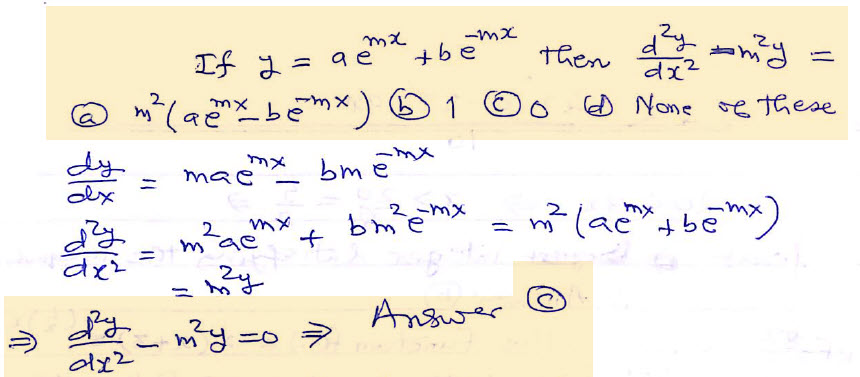 If y = ae^{mx} + be^{-mx} then \frac{d^2y}{dx^2} - m^2y =
ⓐ m^2(ae^{mx} - be^{-mx}) ⓑ 1 ⓒ 0 ⓓ None of these
\frac{dy}{dx} = mae^{mx} - bme^{-mx}
\frac{d^2y}{dx^2} = m^2ae^{mx} + bm^2e^{-mx} = m^2(ae^{mx} + be^{-mx})
= m^2y
⇒ \frac{d^2y}{dx^2} - m^2y = 0 ⇒ Answer ⓒ